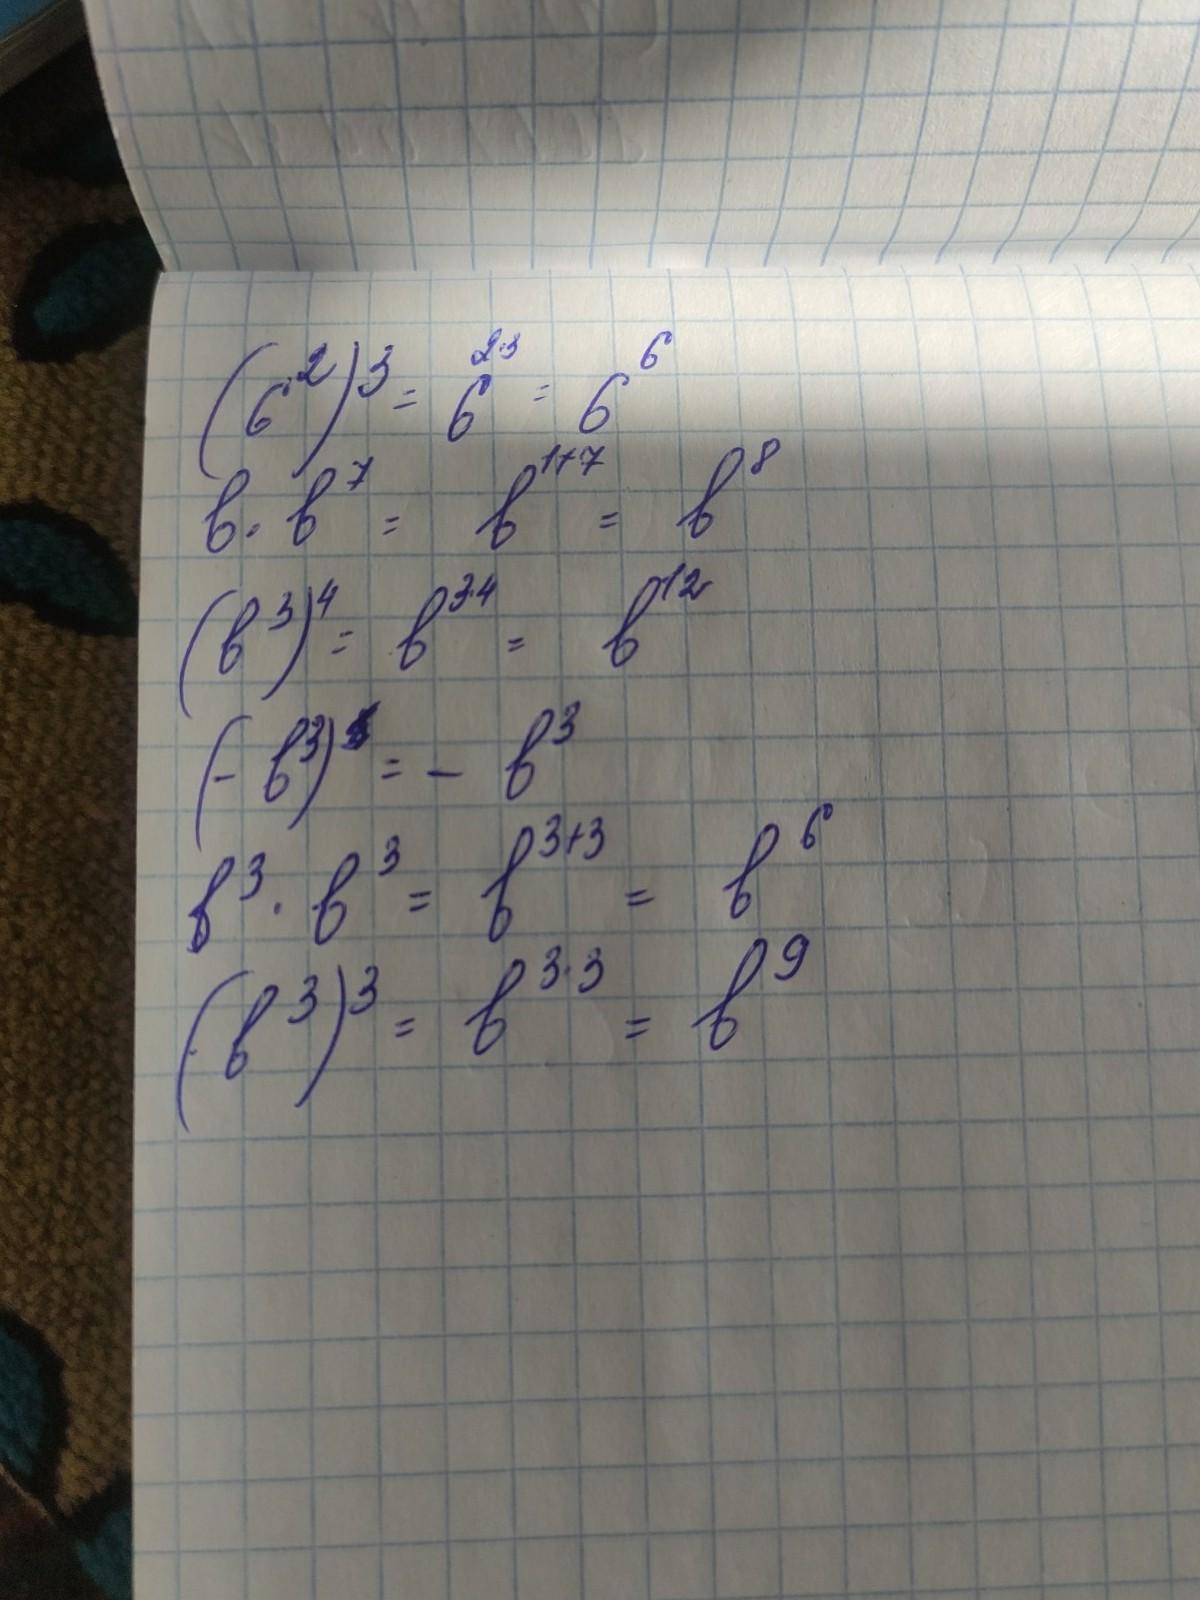 (6²)³ = 6²·³ = 6⁶
b · b⁷ = b¹⁺⁷ = b⁸
(b³)⁴ = b³·⁴ = b¹²
(- b³) = - b³
b³ · b³ = b³⁺³ = b⁶
(b³)³ = b³·³ = b⁹